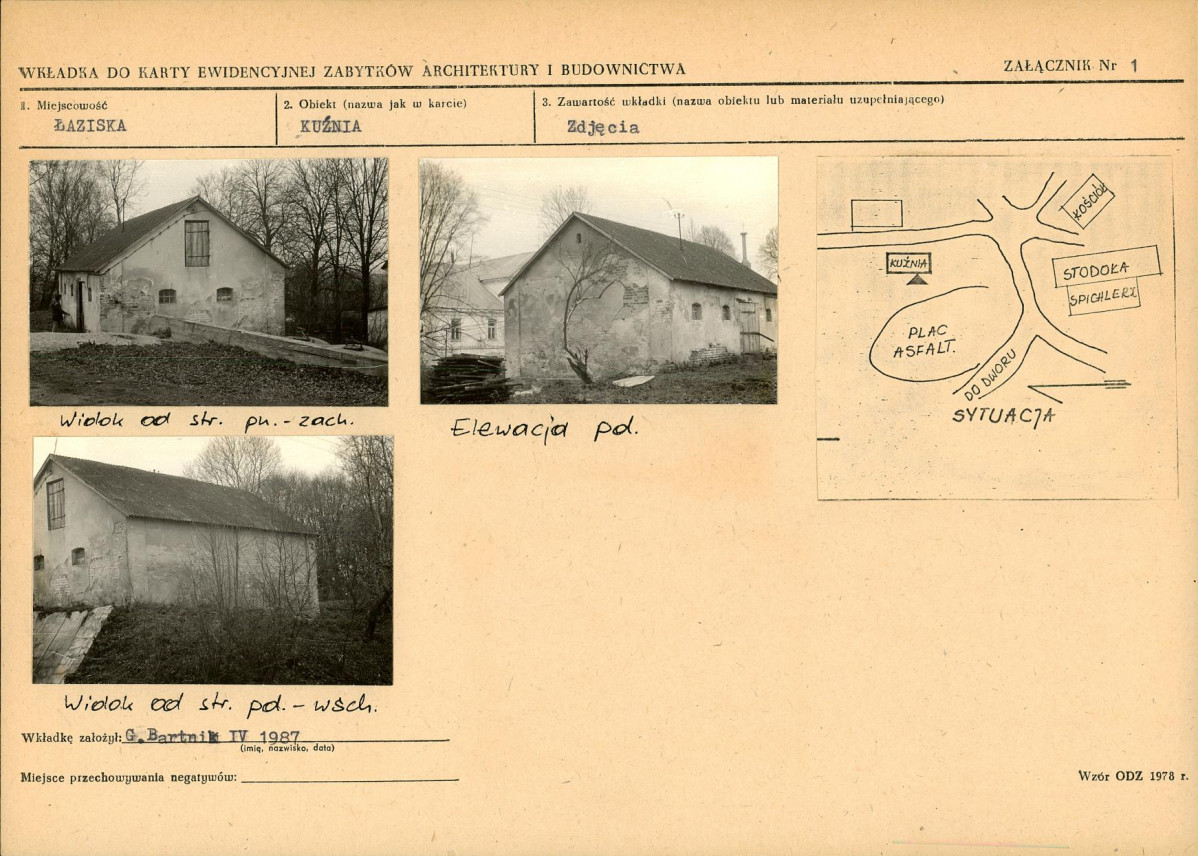 WKŁADKA DO KARTY EWIDENCYJNEJ ZABYTKÓW ARCHITEKTURY I BUDOWNICTWA
ZAŁĄCZNIK Nr 1
1. Miejscowość
ŁAZISKA
2. Obiekt (nazwa jak w karcie)
KUŹNIA
3. Zawartość wkładki (nazwa obiektu lub materiału uzupełniającego)
Zdjęcia
KOŚCIÓŁ
KUŹNIA
STODOŁA
SPICHLERZ
PLAC
ASFALT.
DO DWORU
SYTUACJA
Widok od str. pn.-zach.
Elewacja pd.
Widok od str. pd.-wsch.
Wkładkę założył: G.Bartnik IV 1987
(imię, nazwisko, data)
Miejsce przechowywania negatywów:
Wzór ODZ 1978 r.